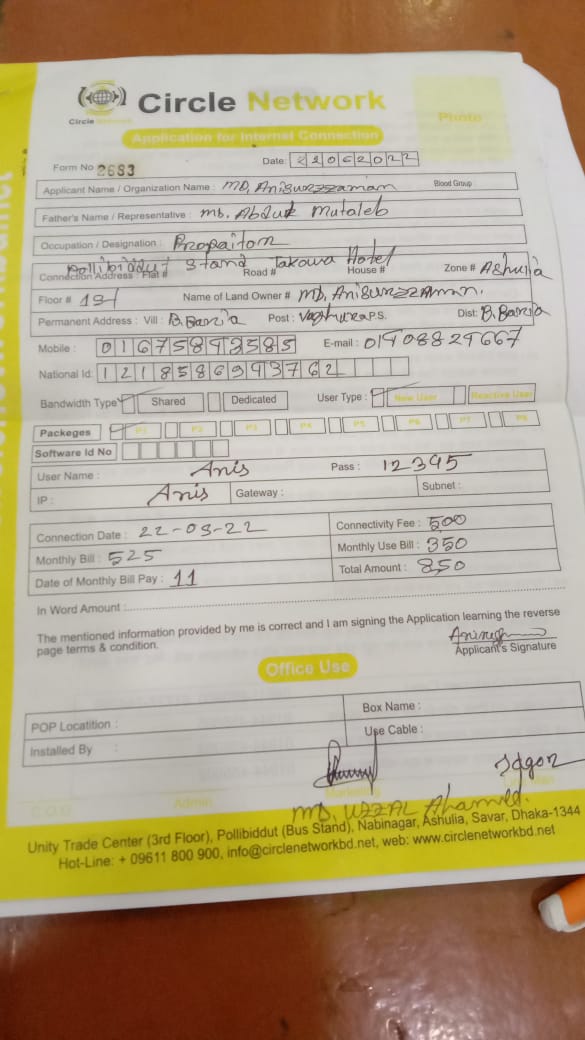 Circle Network
Circle Network
Application for Internet Connection
Photo
Form No 2683
Date: 22062022
Applicant Name / Organization Name : MD, Anisurzzaman Blood Group
Father's Name / Representative : Md. Abdul Mutaleb
Occupation / Designation : Propaitor
Pollibiddut Stand Takowa Hotel
Connection Address : Flat # Road # House # Zone # Ashulia
Floor # 1st Name of Land Owner # MD, Anisurzzaman.
Permanent Address : Vill : B. Baria Post : P.S. Dist: B. Baria
Mobile : 01675892585 E-mail : 01908829667
National Id: 1218586943762
Bandwidth Type Shared Dedicated User Type : New User Reactive User
Packeges P1 P2 P3 P4 P5 P6 P7 P8
Software Id No
User Name : Anis Pass : 12345
IP : Anis Gateway : Subnet :
Connection Date : 22-03-22 Connectivity Fee : 500
Monthly Bill : 525 Monthly Use Bill : 350
Date of Monthly Bill Pay : 11 Total Amount : 850
In Word Amount :
The mentioned information provided by me is correct and I am signing the Application learning the reverse
page terms & condition.
Applicant's Signature
Office Use
POP Locatition : Box Name :
Installed By : Use Cable :
C.O.O Admin Marketing
MD, UZZAL Ahamed.
Unity Trade Center (3rd Floor), Pollibiddut (Bus Stand), Nabinagar, Ashulia, Savar, Dhaka-1344
Hot-Line: + 09611 800 900, info@circlenetworkbd.net, web: www.circlenetworkbd.net